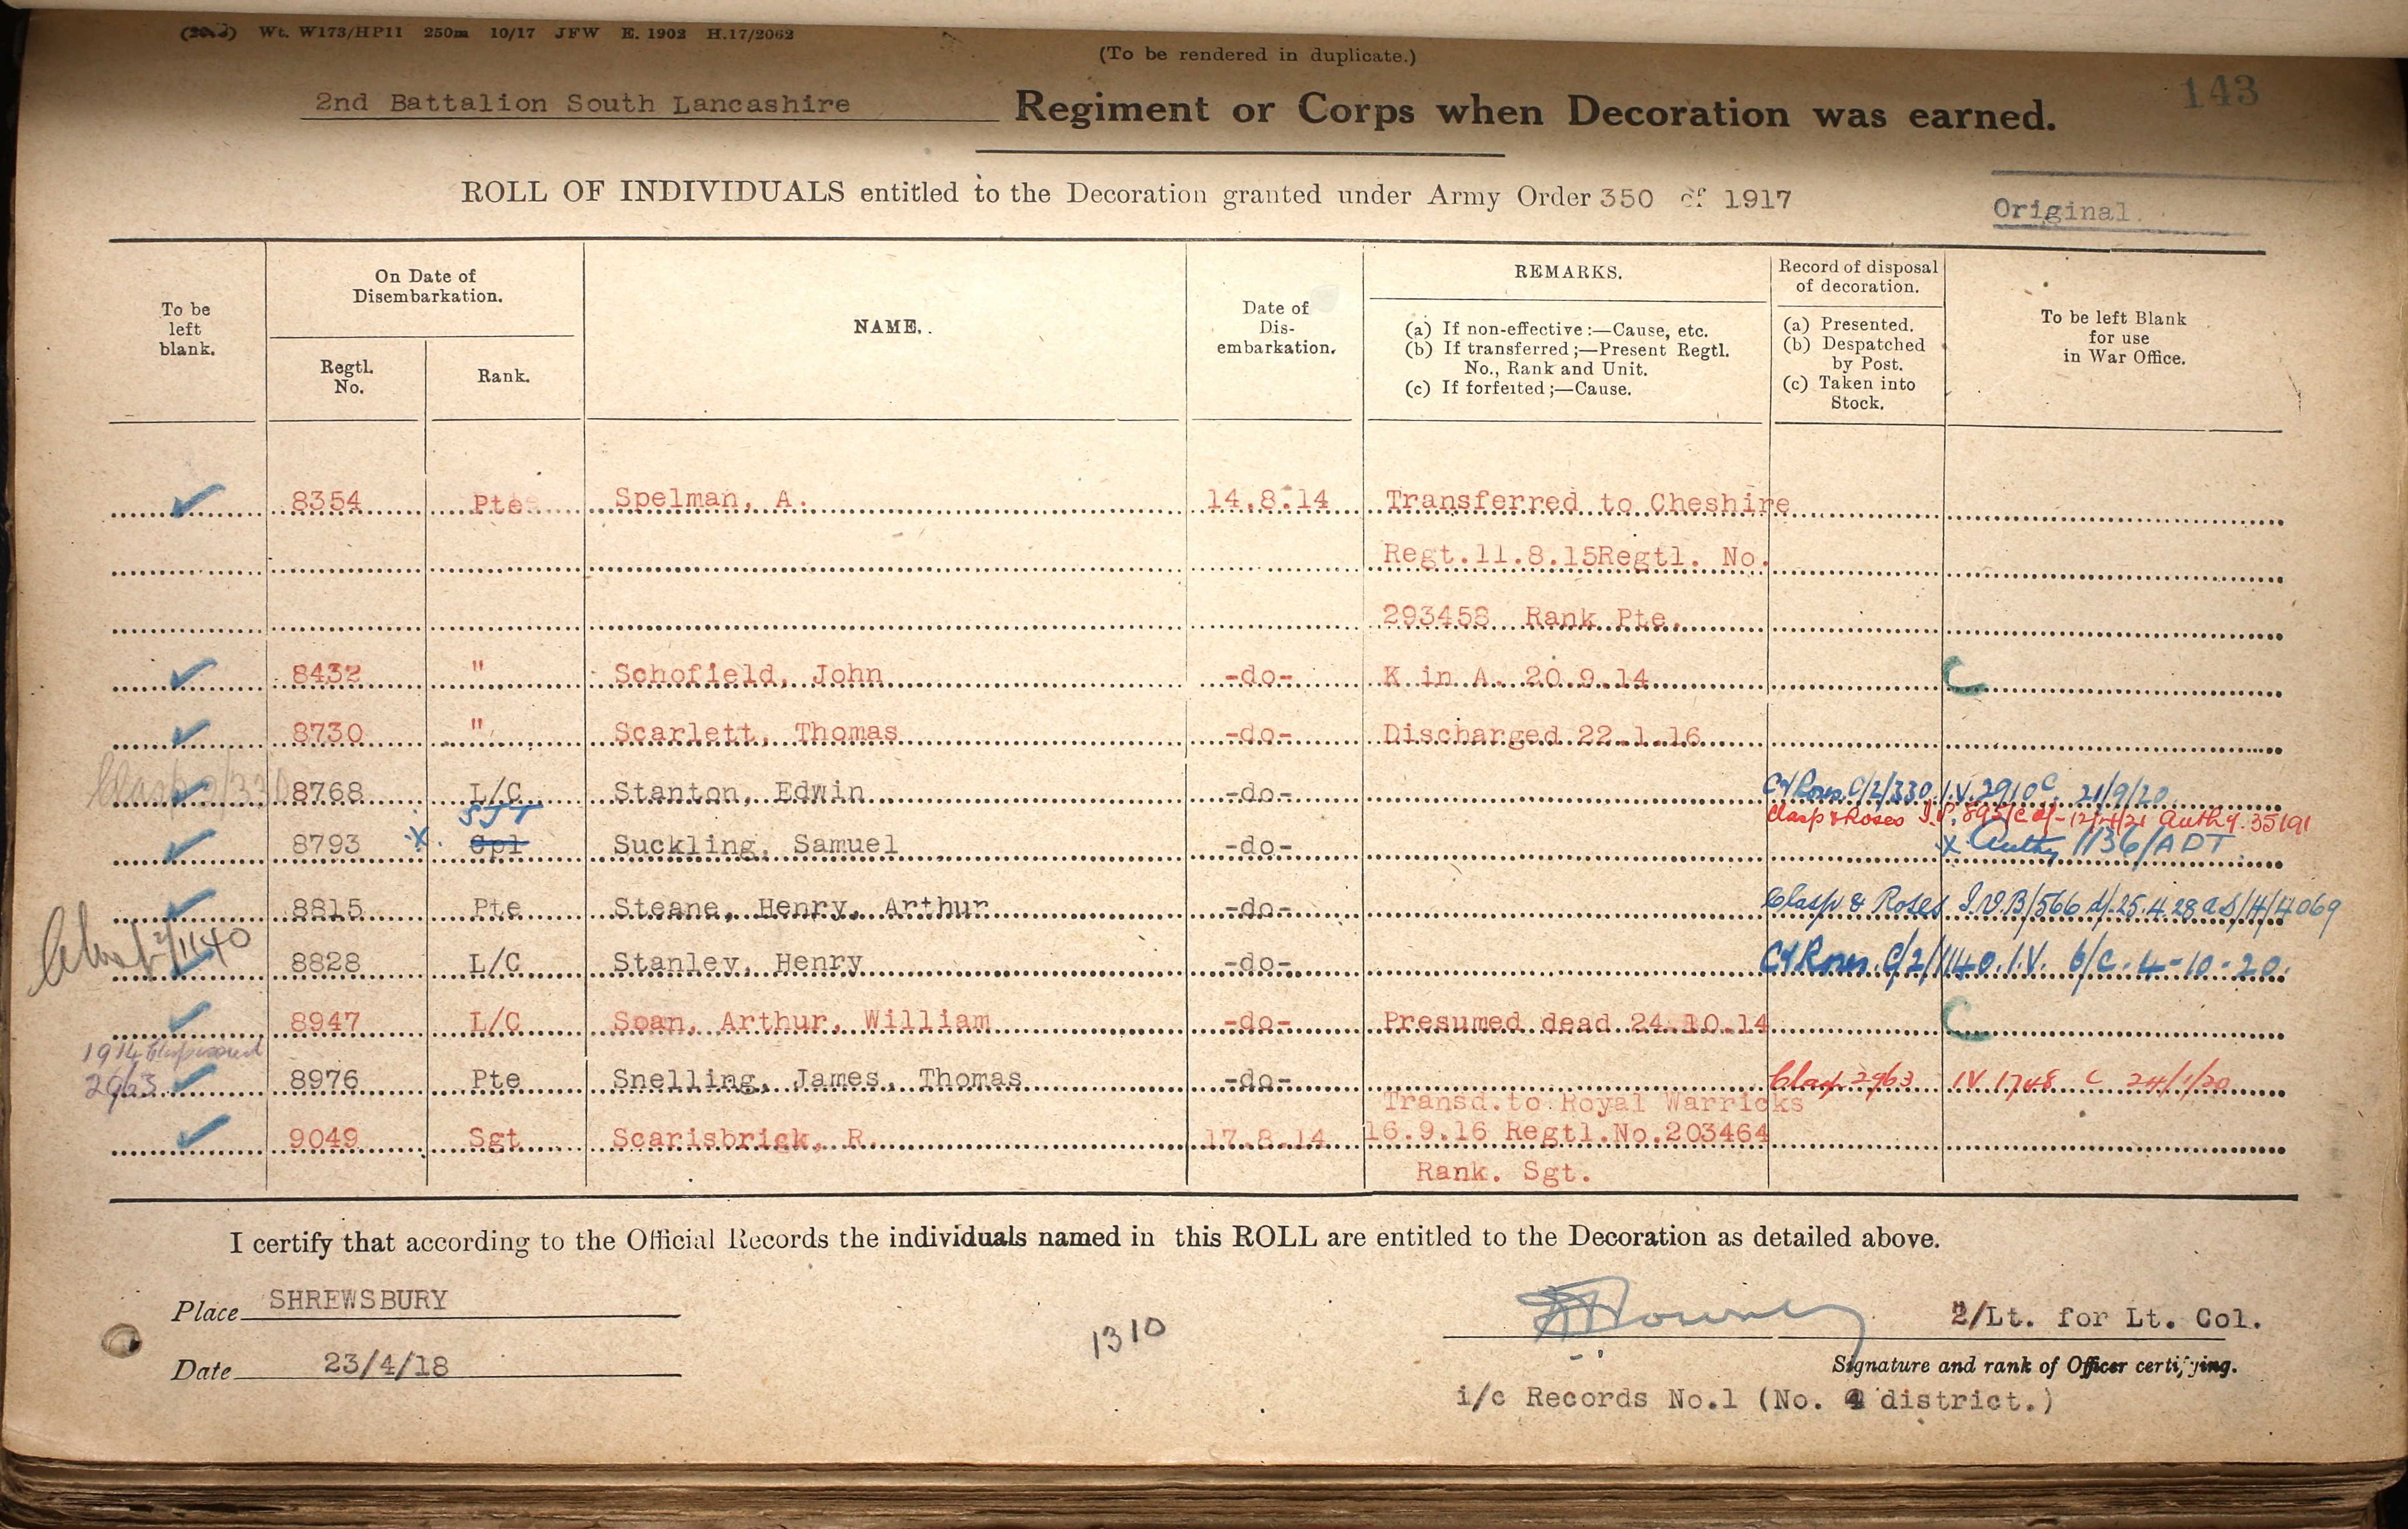 Wt. W173/HP11 250m 10/17 JFW E. 1902 H.17/2062
(To be rendered in duplicate.)
143
2nd Battalion South Lancashire Regiment or Corps when Decoration was earned.
ROLL OF INDIVIDUALS entitled to the Decoration granted under Army Order 350 of 1917
Original.
To be left blank.
On Date of Disembarkation.
Regtl. No.
Rank.
NAME.
Date of Dis-embarkation.
REMARKS.
(a) If non-effective :—Cause, etc.
(b) If transferred ;—Present Regtl. No., Rank and Unit.
(c) If forfeited ;—Cause.
Record of disposal of decoration.
(a) Presented.
(b) Despatched by Post.
(c) Taken into Stock.
To be left Blank for use in War Office.
8354 Pte Spelman, A. 14.8.14 Transferred to Cheshire
Regt.11.8.15Regtl. No.
293458 Rank Pte.
8432 " Schofield, John -do- K in A. 20.9.14 C
8730 " Scarlett, Thomas -do- Discharged 22.1.16
Clasp 2/330 8768 L/C Stanton, Edwin -do- C&Roses C/2/330 I.V. 2910C. 21/9/20
SJT Clasp & Roses I.V. 895/C d/- 12/4/21 Authy. 35191
8793 x Cpl Suckling, Samuel -do- x Authy 1136/ADT
8815 Pte Steane, Henry, Arthur -do- Clasp & Roses I.V.B/566 d/.25.4.28 aS/H/4069
Clasp 2/1140 8828 L/C Stanley, Henry -do- C&Roses C/2/1140. I.V. 6/C. 4-10-20.
8947 L/C Soan, Arthur, William -do- Presumed dead 24.10.14 C
1914 Clasp issued
2963 8976 Pte Snelling, James, Thomas -do- Clasp 2963 IV 1748 C 24/1/20
Transd.to Royal Warricks
9049 Sgt Scarisbrick, R. 17.8.14 16.9.16 Regtl.No.203464
Rank. Sgt.
I certify that according to the Official Records the individuals named in this ROLL are entitled to the Decoration as detailed above.
Place SHREWSBURY
1310
2/Lt. for Lt. Col.
Date 23/4/18
Signature and rank of Officer certifying.
i/c Records No.1 (No. 4 district.)